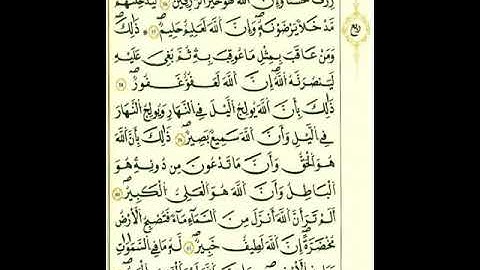 ربع
رِزْقًا حَسَنًا وَإِنَّ اَللَّهَ لَهُوَ خَيْرُ اُلرَّٰزِقِينَ لَيُدْخِلَنَّهُم
مَّدْخَلًا يَرْضَوْنَهُۥ وَإِنَّ اَللَّهَ لَعَلِيمٌ حَلِيمٌ ذَٰلِكَ
وَمَنْ عَاقَبَ بِمِثْلِ مَا عُوقِبَ بِهِۦ ثُمَّ بُغِيَ عَلَيْهِ
لَيَنصُرَنَّهُ اُللَّهُ إِنَّ اَللَّهَ لَعَفُوٌّ غَفُورٌ
ذَٰلِكَ بِأَنَّ اَللَّهَ يُولِجُ اُلَّيْلَ فِي اِلنَّهَارِ وَيُولِجُ اُلنَّهَارَ
فِي اِلَّيْلِ وَأَنَّ اَللَّهَ سَمِيعٌ بَصِيرٌ ذَٰلِكَ بِأَنَّ اَللَّهَ
هُوَ اَلْحَقُّ وَأَنَّ مَا تَدْعُونَ مِن دُونِهِۦ هُوَ
اَلْبَٰطِلُ وَأَنَّ اَللَّهَ هُوَ اَلْعَلِيُّ اُلْكَبِيرُ
أَلَمْ تَرَ أَنَّ اَللَّهَ أَنزَلَ مِنَ اَلسَّمَآءِ مَآءً فَتُصْبِحُ اُلْأَرْضُ
مُخْضَرَّةً إِنَّ اَللَّهَ لَطِيفٌ خَبِيرٌ لَّهُۥ مَا فِي اِلسَّمَٰوَٰتِ